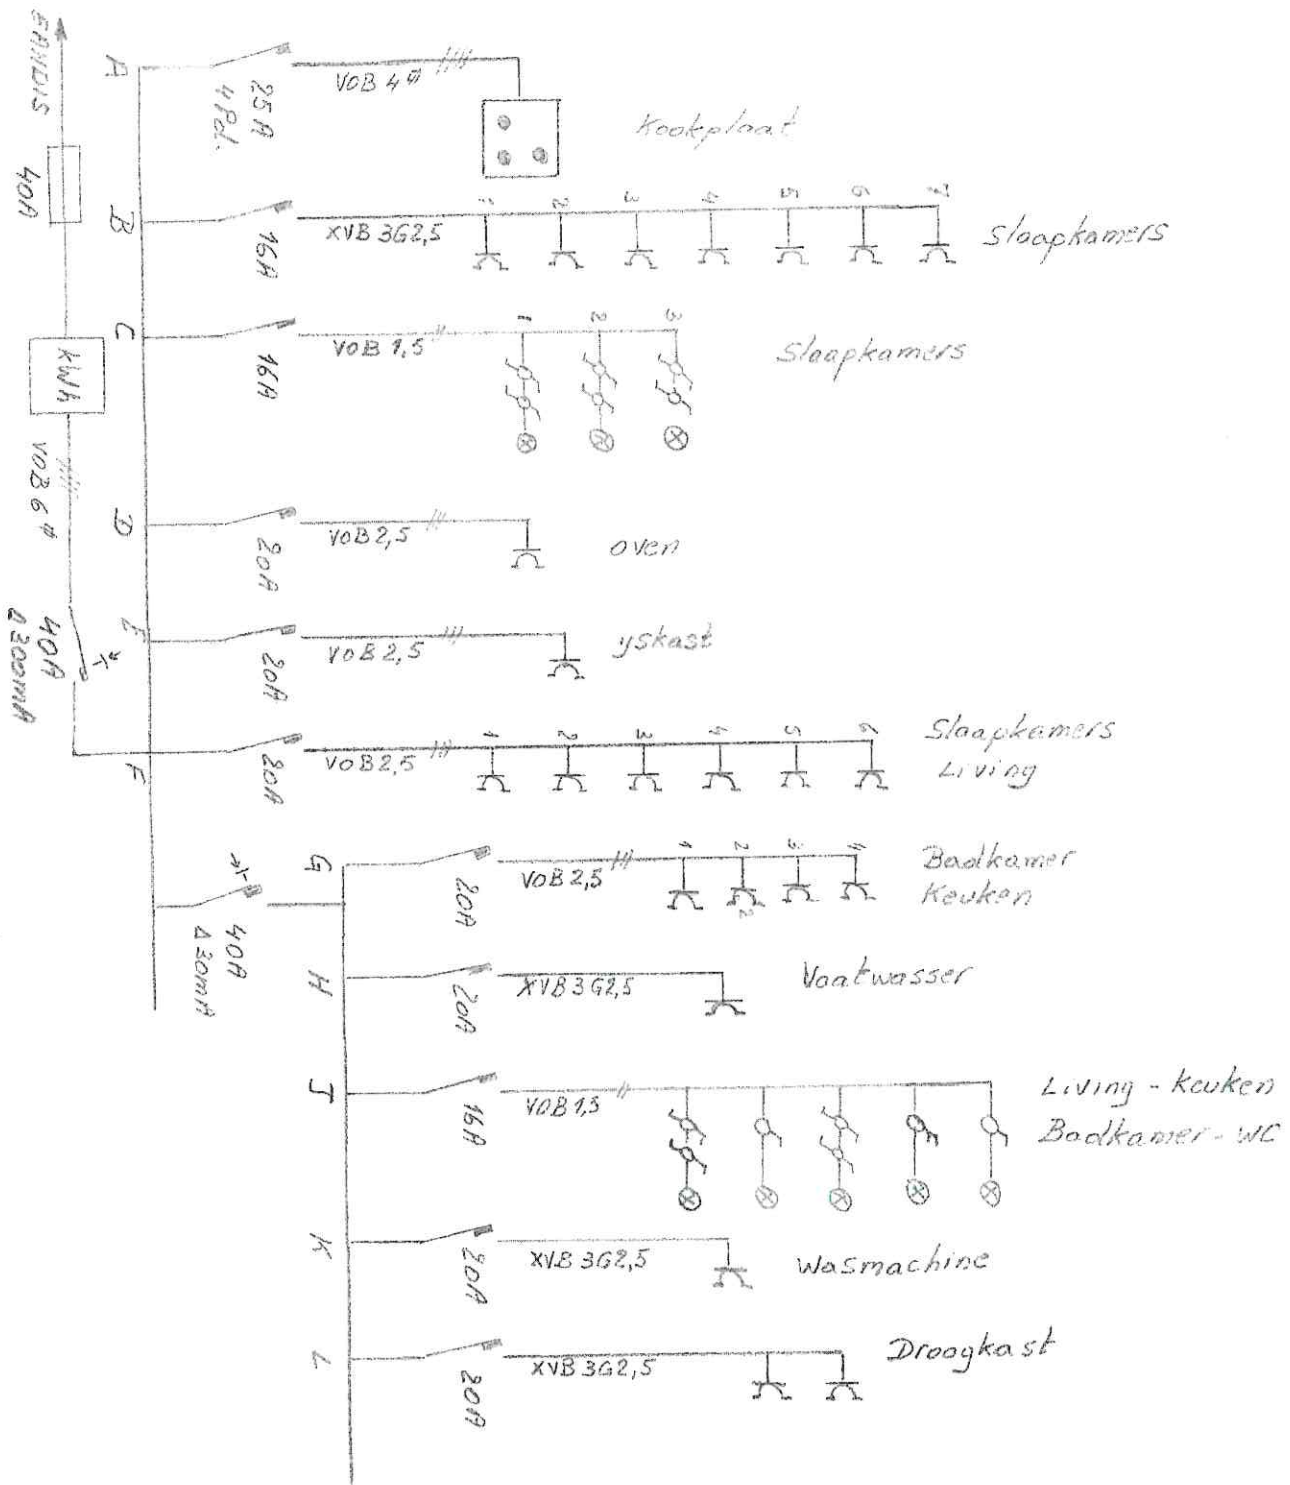 EANDIS
40A
KWh
VOB 6#
40A
Δ300mA
A
25A
4Pol.
VOB 4#
Kookplaat
B
16A
XVB 3G2,5
1 2 3 4 5 6 7
Slaapkamers
C
16A
VOB 1,5
1 2 3
Slaapkamers
D
20A
VOB 2,5
oven
E
20A
VOB 2,5
yskast
F
20A
VOB 2,5
1 2 3 4 5 6
Slaapkamers
Living
40A
Δ30mA
G
20A
VOB 2,5
1 2 3 4
2
Badkamer
Keuken
H
20A
XVB 3G2,5
Vaatwasser
J
16A
VOB 1,5
Living - keuken
Badkamer - WC
K
20A
XVB 3G2,5
Wasmachine
L
20A
XVB 3G2,5
Droogkast